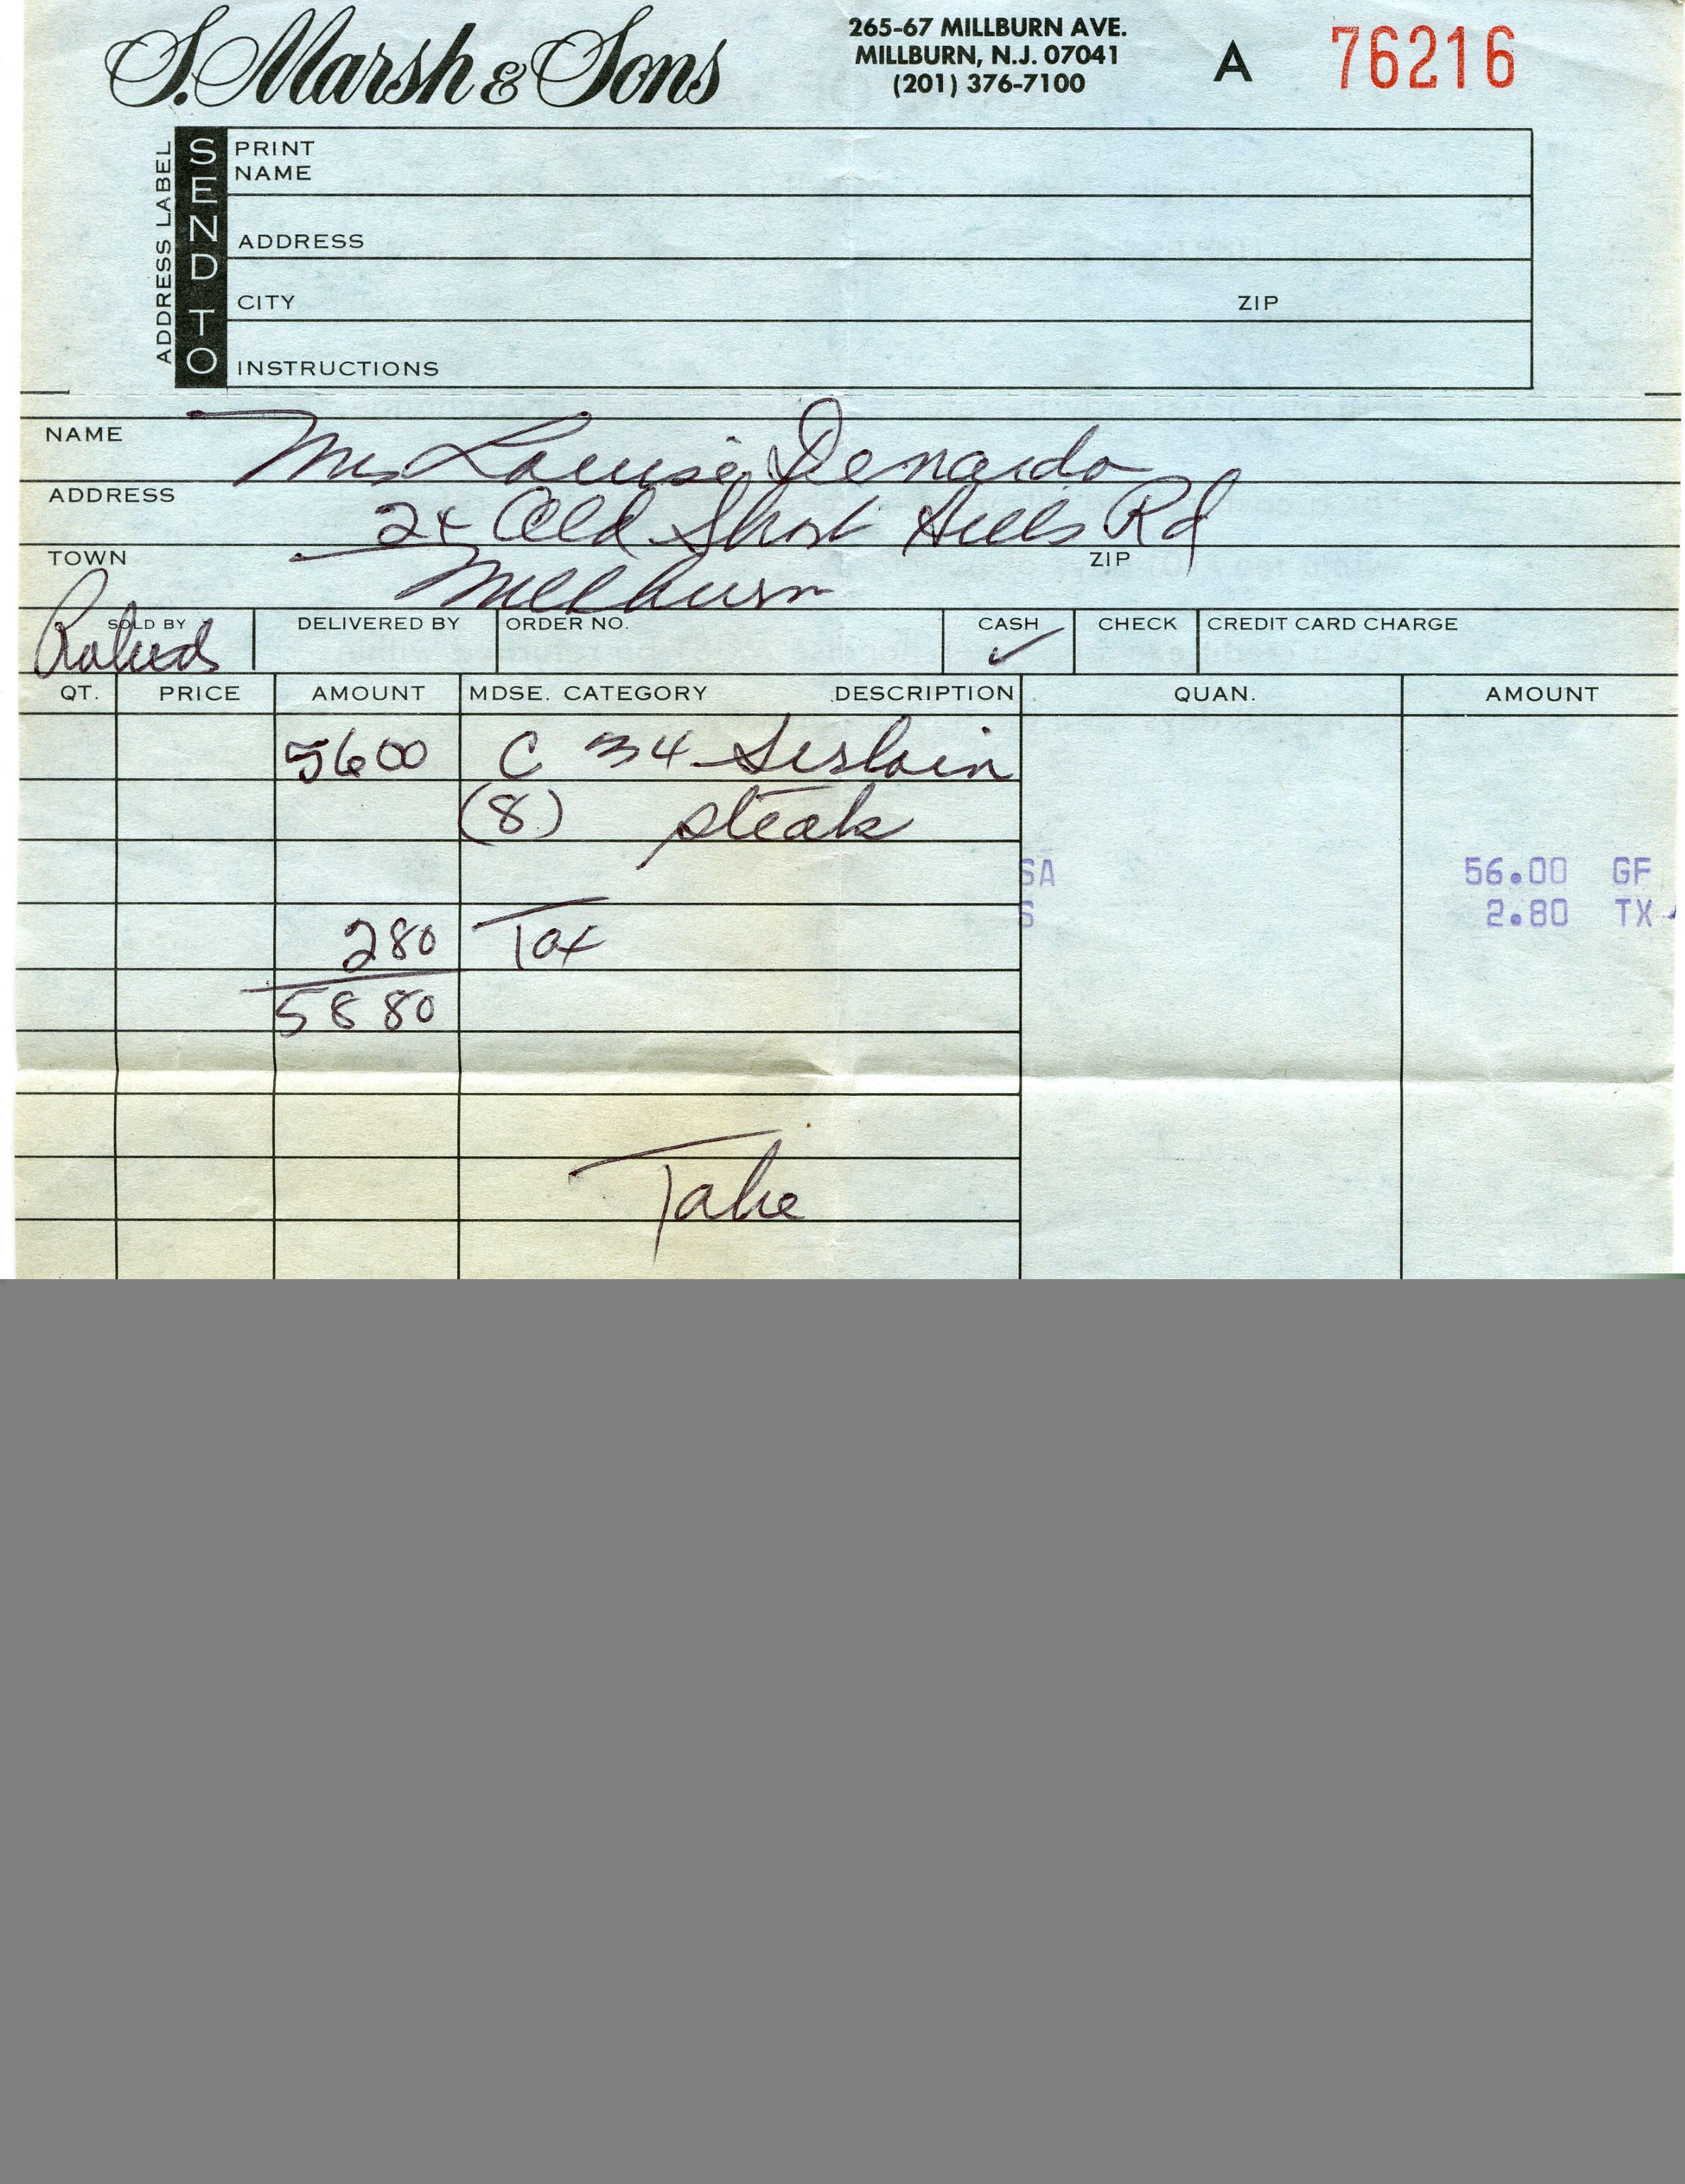 S. Marsh & Sons
265-67 MILLBURN AVE.
MILLBURN, N.J. 07041
(201) 376-7100
A 76216
ADDRESS LABEL
SEND TO
PRINT NAME
ADDRESS
CITY ZIP
INSTRUCTIONS
NAME Mrs Louise Denardo
ADDRESS 24 Old Short Hills Rd
TOWN Millburn ZIP
SOLD BY DELIVERED BY ORDER NO. CASH ✓ CHECK CREDIT CARD CHARGE
QT. PRICE AMOUNT MDSE. CATEGORY DESCRIPTION QUAN. AMOUNT
56 00 C 34 Sirloin
(8) steak
SA 56.00 GF
S 2.80 TX
2 80 Tax
58 80
Take